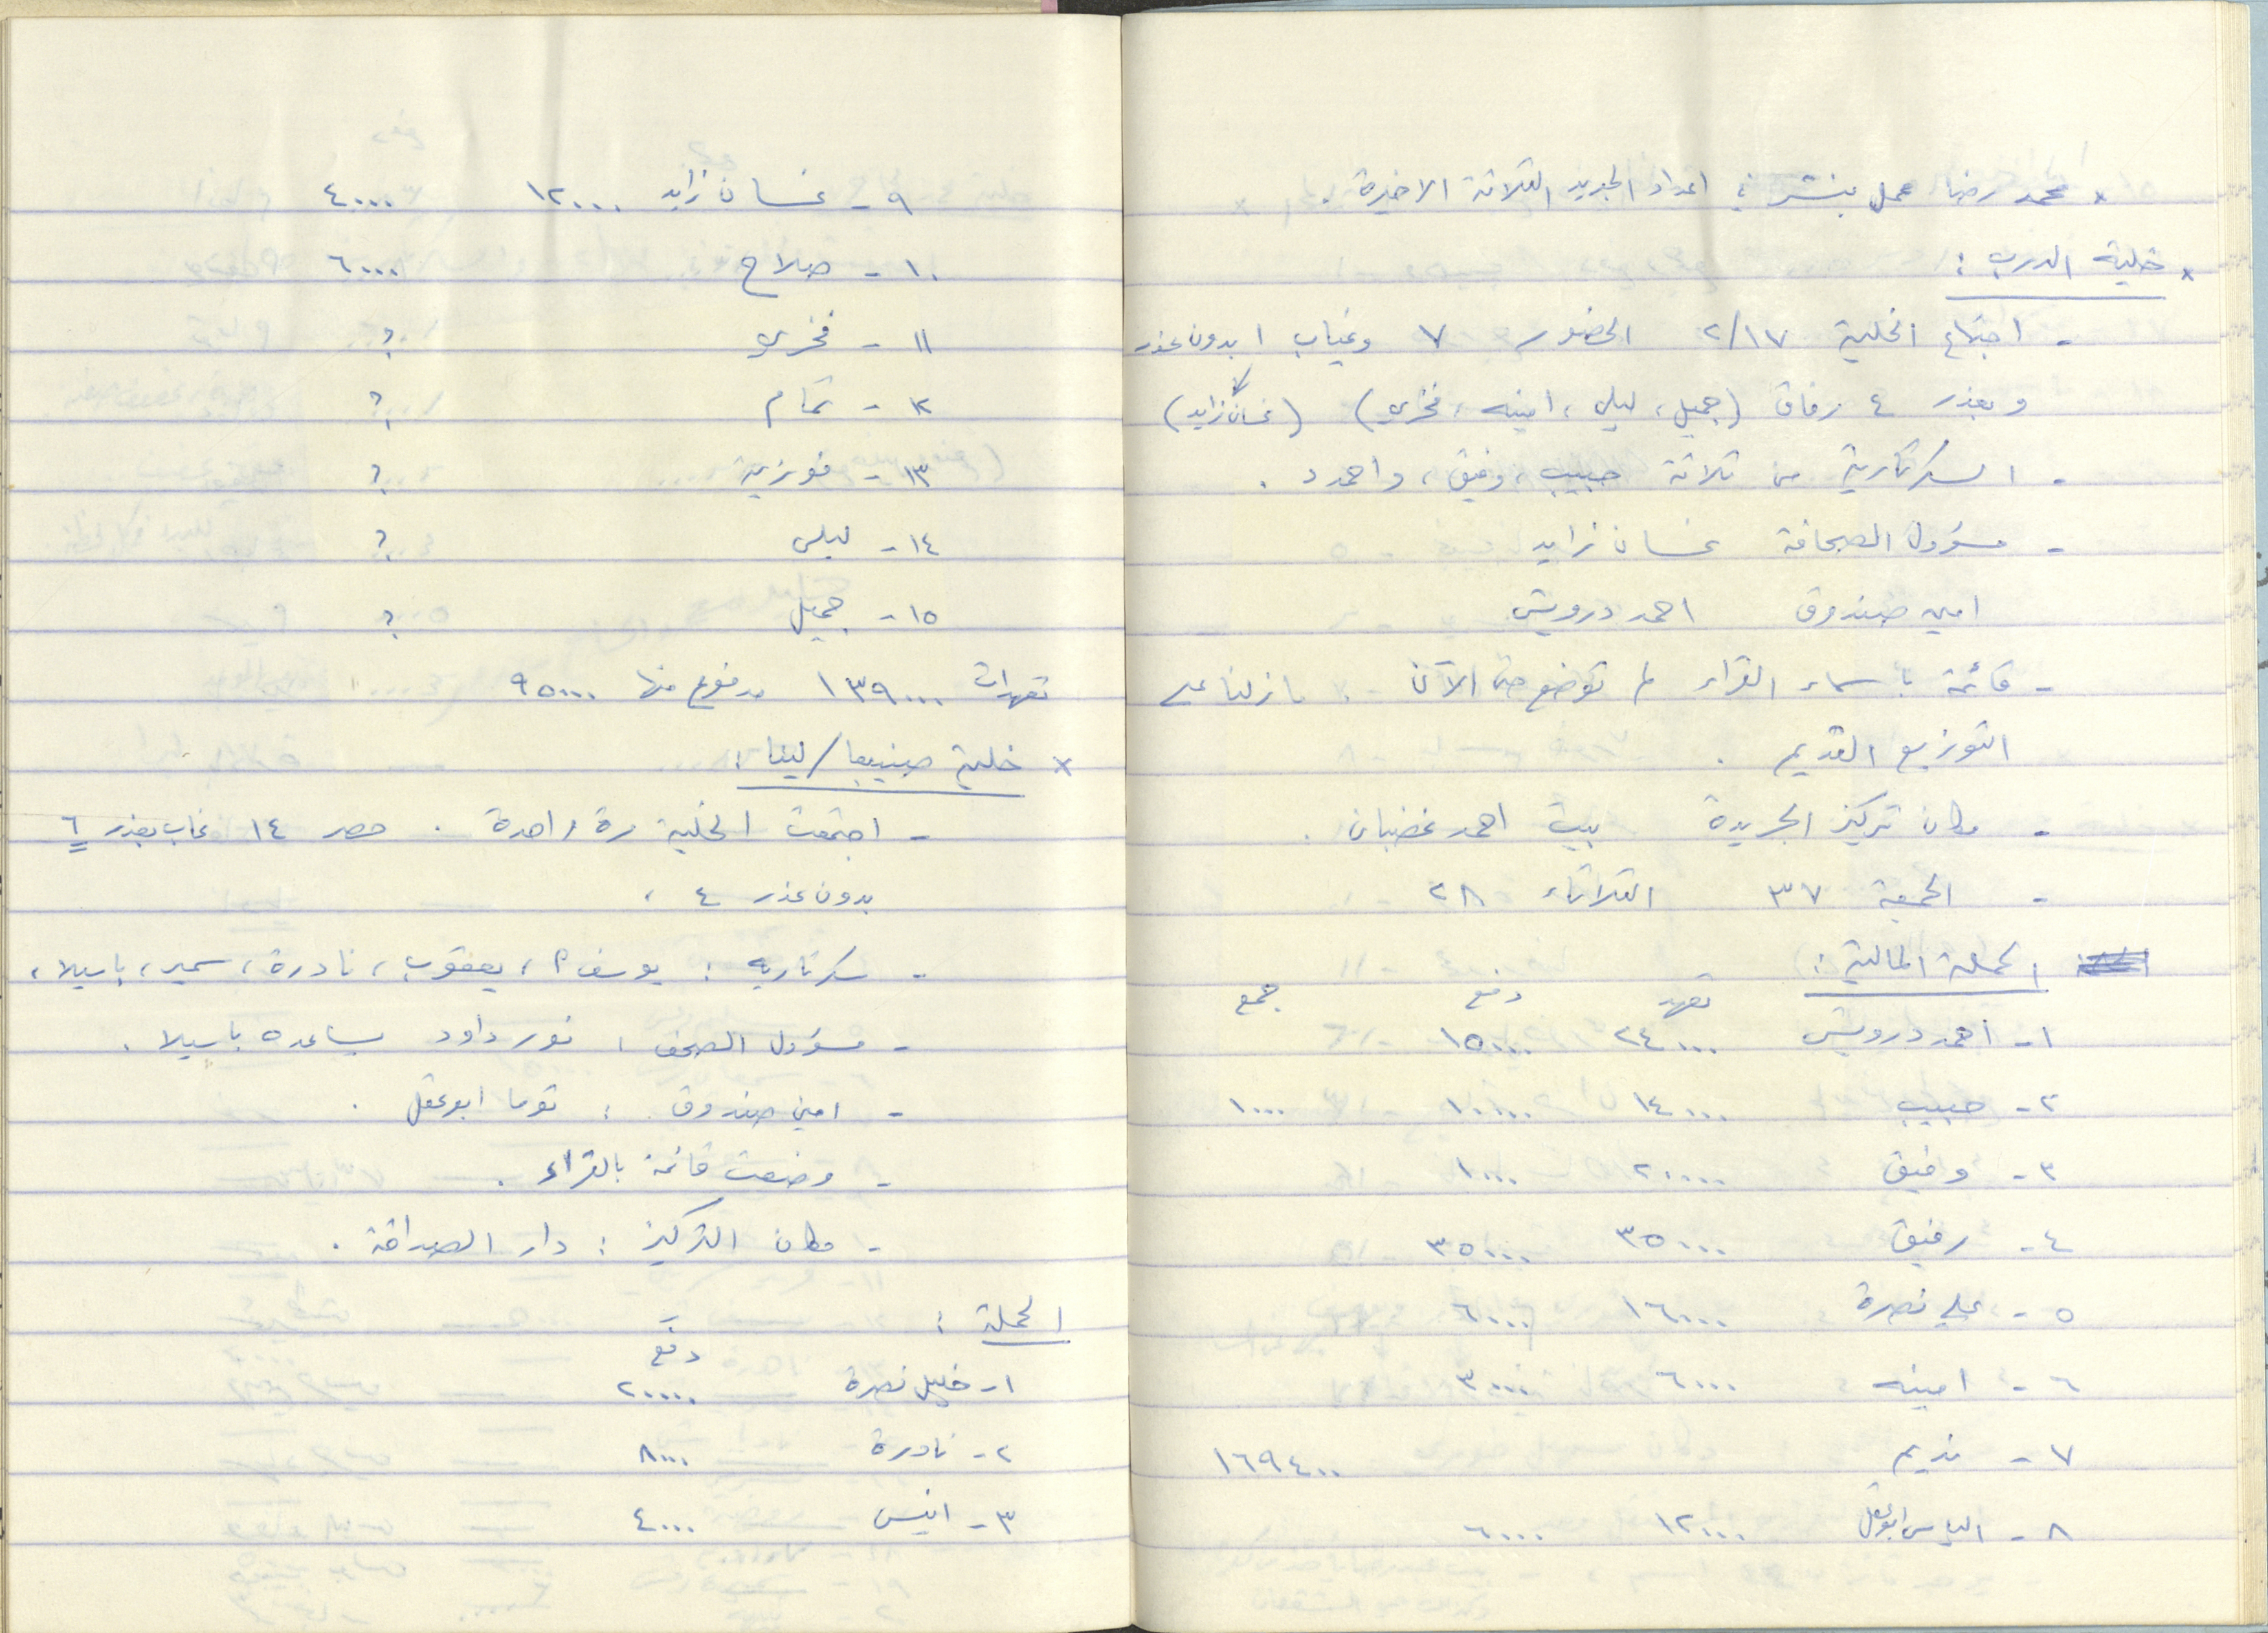 × محمد رضا عمل بنشر في اعداد الجريدة الثلاثة الاخيرة .
× خلية الدرب :
- اجتماع الخلية ١٧/٢ الحضور ٧ وغياب ١ بدون عذر
وبعذر ٤ رفاق (جميل، ليلى، امينه، فخري) (غسان زايد)
- السكرتارية من ثلاثة حبيب، وفيق، واحمد د .
- مسؤول الصحافة غسان زايد
امين صندوق احمد درويش
- قائمة باسماء القراء لم توضع حتى الآن . ما زلنا على
التوزيع القديم .
- مكان تركيز الجريدة بيت احمد غضبان .
- الجمعة ٣٧ الثلاثاء ٢٨
الحملة المالية :
تعهد دفع جمع
١- احمد درويش ٢٤٠٠٠ ١٥٠٠٠
٢- حبيب ١٤٠٠٠ ١٠٠٠٠ ١٠٠٠
٣- وفيق ٢٠٠٠٠ ١٠٠٠
٤- رفيق ٣٥٠٠٠ ٣٥٠٠٠
٥- علي نصرة ١٦٠٠٠ ٦٠٠٠
٦- امينه ٦٠٠٠ ٣٠٠٠
٧- نديم ١٦٩٤٠٠
٨- الياس ابو عقل ١٢٠٠٠ ٦٠٠٠
٩- غسان زايد ١٢٠٠٠ ٤٠٠٠
١٠- صلاح ٦٠٠٠
١١- فخري ؟
١٢- تمام ؟
١٣- فوزية ؟
١٤- ليلى ؟
١٥- جميل ؟
تعهدات ١٣٩٠٠٠ مدفوع منها ٩٥٠٠٠
× خلية صنيبعا/لينا :
- اجتمعت الخلية مرة واحدة . حضر ١٤ غاب بعذر ٦
بدون عذر ٤ .
- سكرتاريه : يوسف م، يعقوب، نادرة، سمير، باسيلا،
- مسؤول الصحف : نور داود يساعده باسيلا .
- امين صندوق : توما ابو عقل .
- وضعت قائمة بالقراء .
- مكان التركيز : دار الصداقة .
الحملة :
دفع
١- خليل نصرة ٢٠٠٠٠
٢- نادرة ٨٠٠٠
٣- انيس ٤٠٠٠